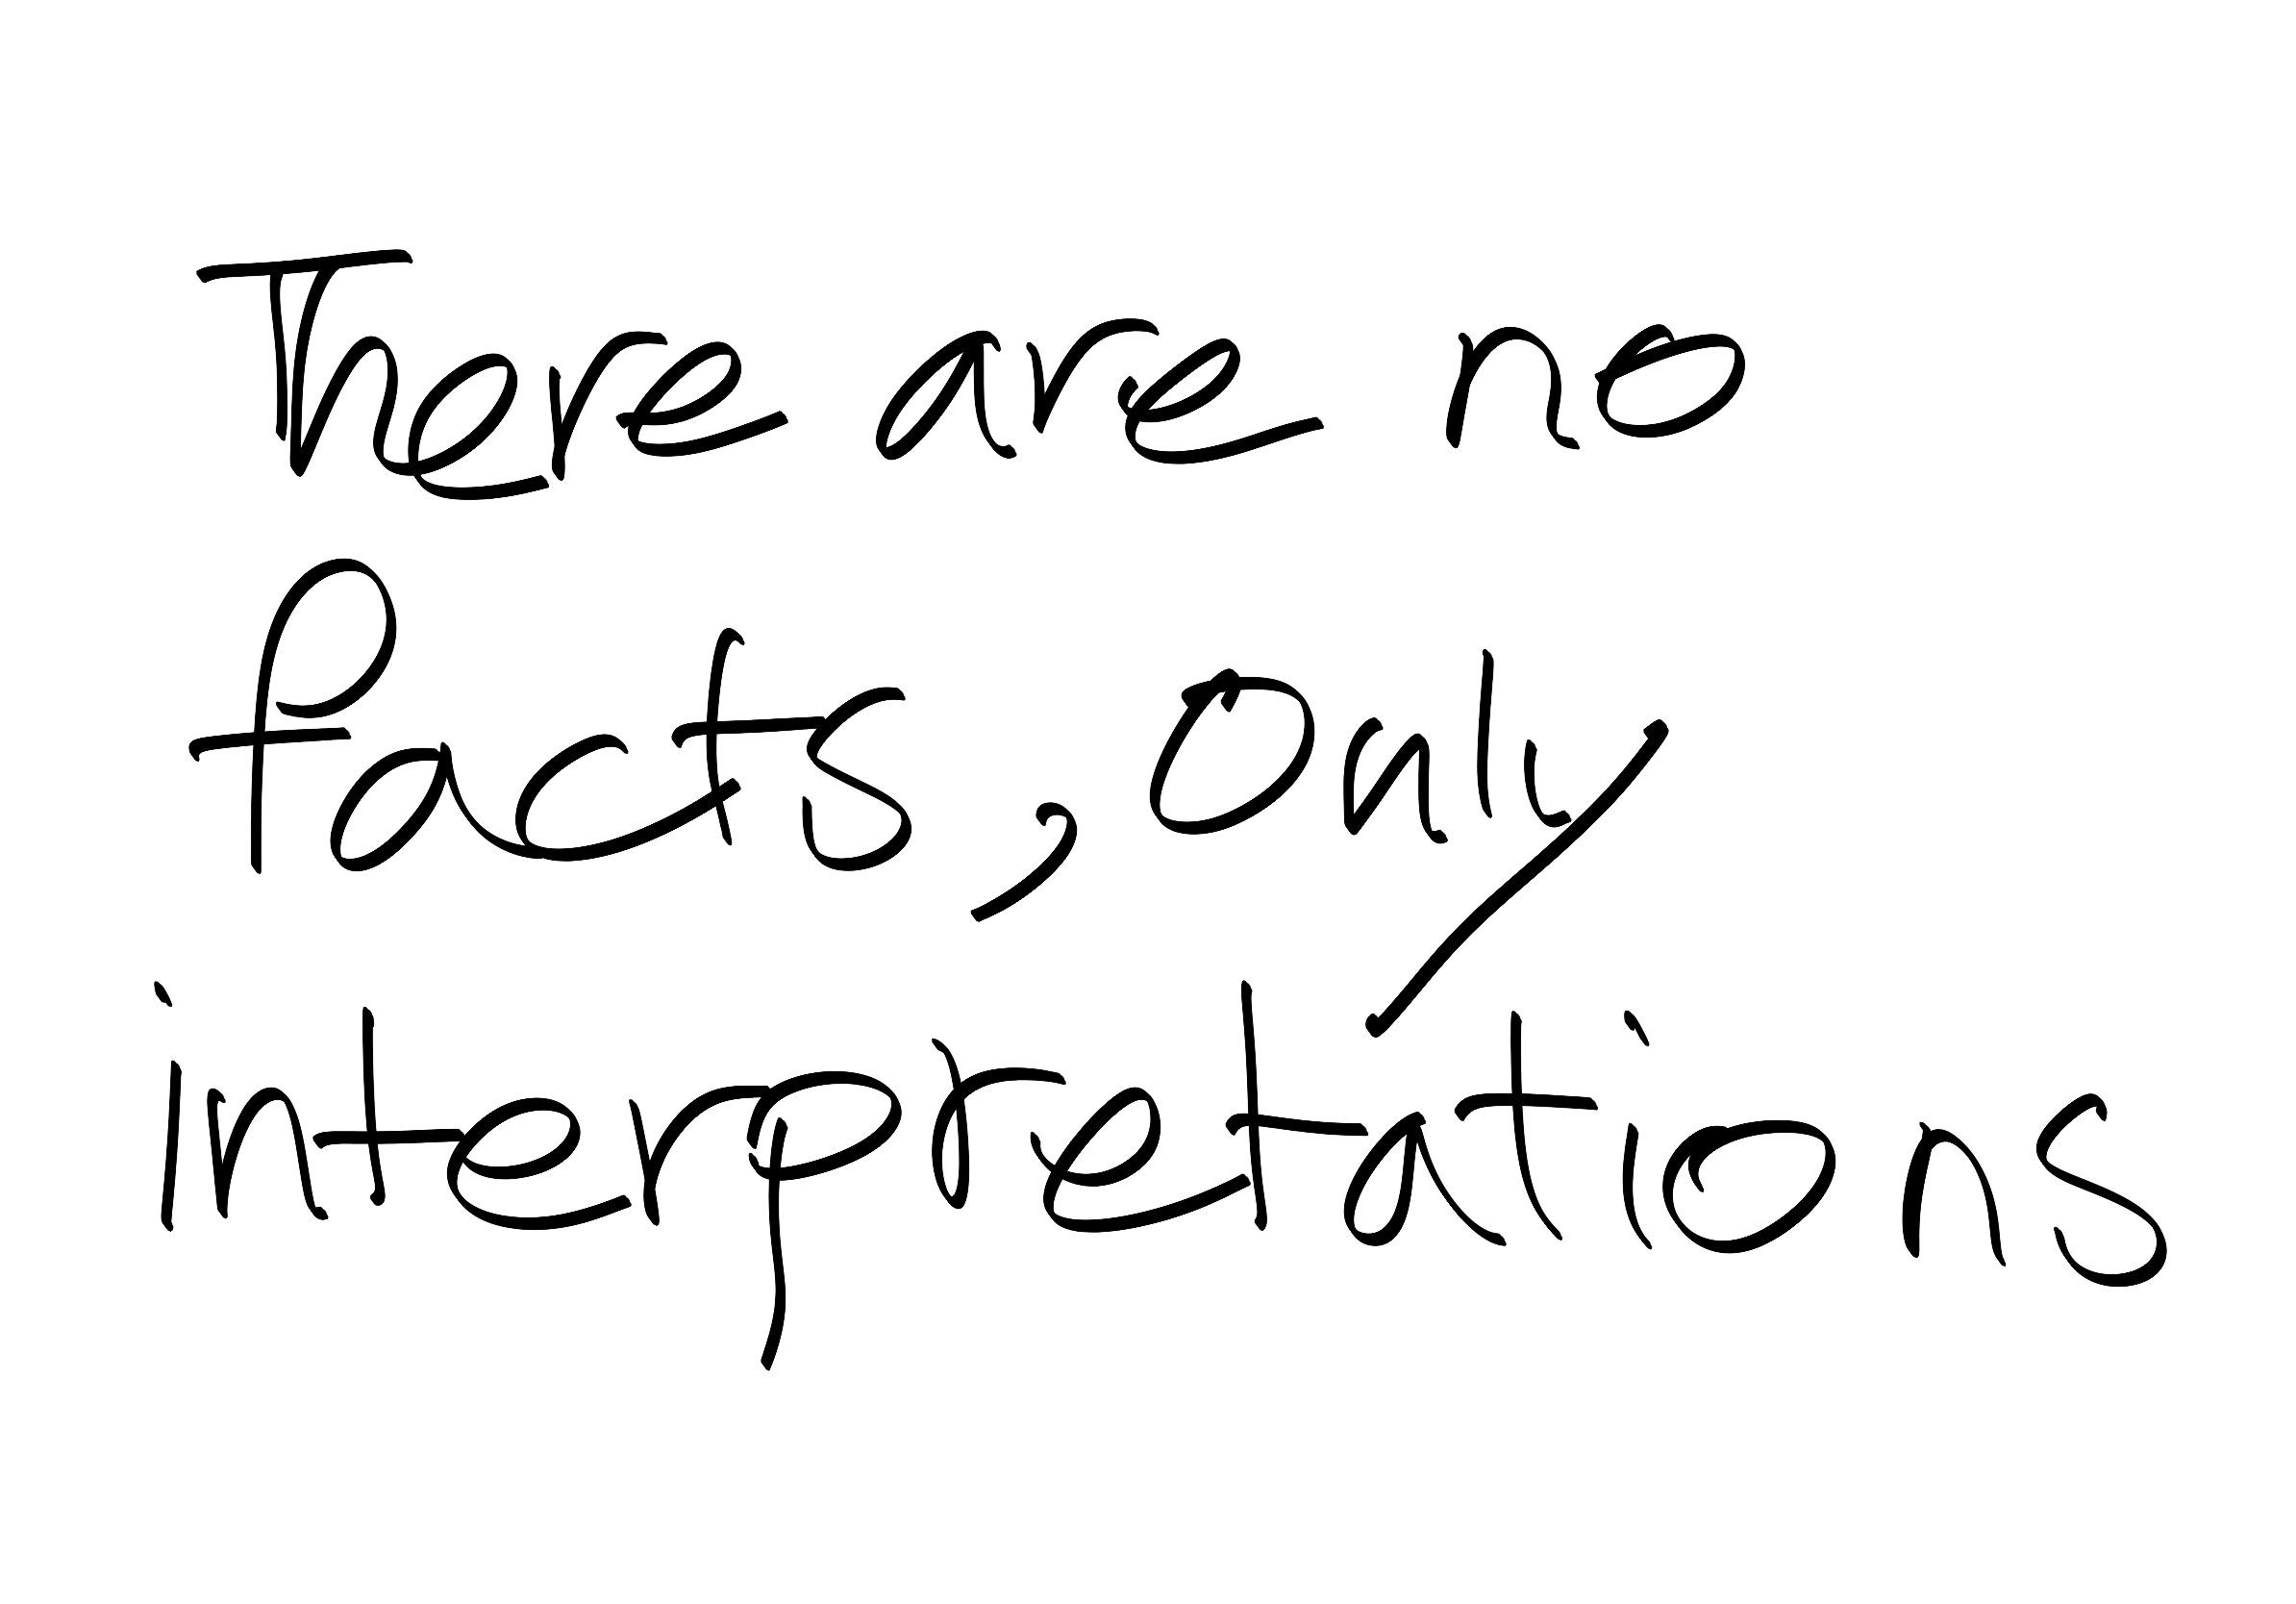 There are no
facts, only
interpretations